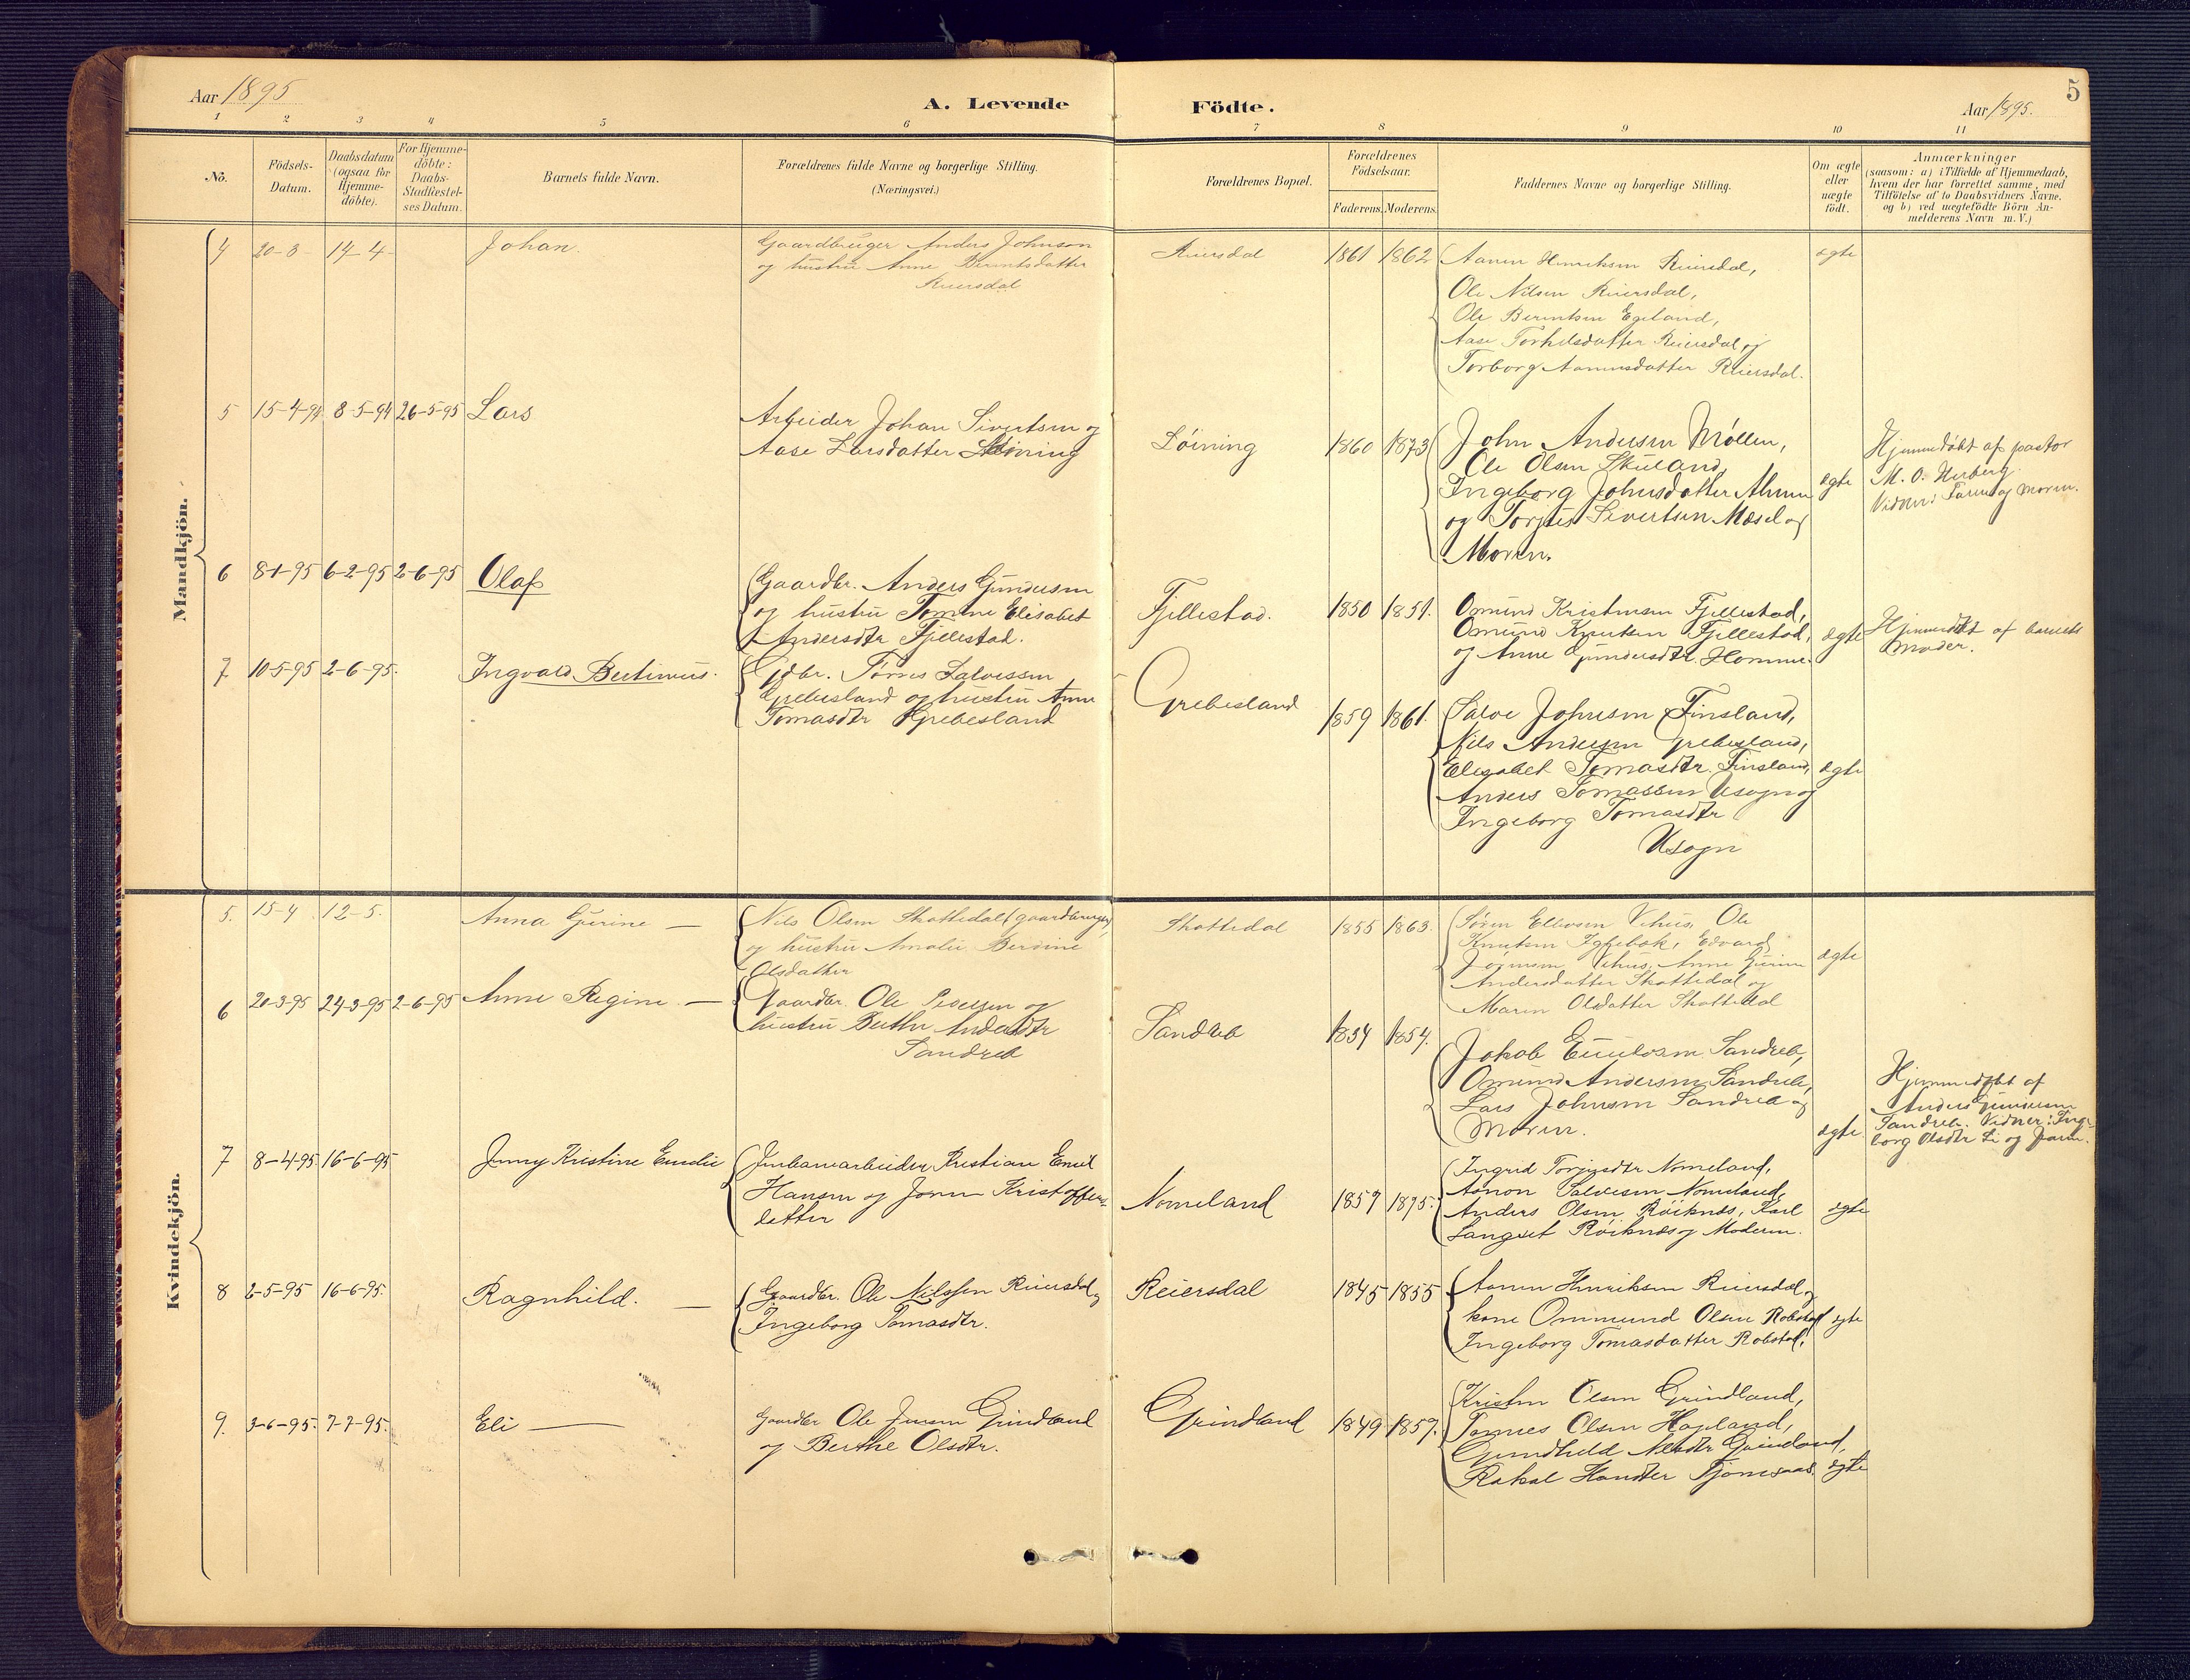 Aar 1895
A. Levende
Födte.
Aar 1895.
5
1 2 3 4 5 6 7 8 9 10 11
No.
Födsels-
Datum.
Daabsdatum
(ogsaa for
Hjemme-
döbte).
For Hjemme-
döbte:
Daabs-
Stadfæstel-
ses Datum.
Barnets fulde Navn.
Forældrenes fulde Navne og borgerlige Stilling.
(Næringsvei.)
Forældrenes Bopæl.
Forældrenes
Födselsaar.
Faderens. Moderens.
Faddernes Navne og borgerlige Stilling.
Om ægte
eller
uægte
födt.
Anmærkninger
(saasom: a) i Tilfælde af Hjemmedaab,
hvem der har forrettet samme, med
Tilföielse af to Daabsvidners Navne,
og b) ved uægtefödte Börn An-
melderens Navn m.V.)
Mandkjön.
4 20-3 14-4
Johan.
Gaardbruger Anders Johnson
og hustru Anne Berntsdatter
Reiersdal
Reiersdal
1861 1862
Aanen Henriksen Reiersdal,
Ole Nilsen Reiersdal,
Ole Berentsen Egeland,
Aase Torkilsdatter Reiersdal og
Torborg Aanensdatter Reiersdal.
ægte
5 15-4-94 8-5-94 26-5-95
Lars
Arbeider Johan Sivertsen og
Aase Larsdatter Løining
Løining
1860 1873
John Andersen Møllen,
Ole Olsen Skuland,
Ingeborg Johnsdatter
og Sivertsen Mæsel og
Moren.
ægte
Hjemmedøbt af pastor
M. O.
Vidner: Faren og moren.
6 8-1-95 6-2-95 2-6-95
Olaf
Gaardbr. Anders Gundersen
og hustru Tomine Elisabet
Andersdtr Fjellestad.
Fjellestad.
1850 1851.
Omund Kristensen Fjellestad,
Omund Knutsen Fjellestad,
og Anne Gundersdtr. Homme.
ægte
Hjemmedøbt af barnets
Moder.
7 10-5-95 2-6-95.
Ingvald Bertinius.
Gdbr. Tørres Salvessen
Grebesland og hustru Anne
Tomasdtr Grebesland
Grebesland
1859 1861.
Salve Johnsen Finsland,
Nils Andersen Grebesland,
Elisabet Tomasdtr. Finsland,
Anders Tomassen Usogn og
Ingeborg Tomasdtr
Usogn
ægte
Kvindekjön.
5. 15-4 12-5.
Anna Gurine —
Nils Olsen Skottedal (gaardbruger)
og hustru Amalie Berdine
Olsdatter
Skottedal
1855 1863.
Søren Ellevsen Vehus, Ole
Knutsen Igletjøk, Edvard
Jørgensen Vehus, Anne Gurine
Andersdatter Skottedal og
Maren Olsdatter Skottedal
ægte
6 20-3-95 24-3-95 2-6-95
Anne Regine. —
Gaardbr. Ole Pedersen og
hustru Berthe Andersdtr
Sandreb
Sandreb
1854 1854.
Jakob Sandreb,
Omund Andersen Sandreb,
Lars Johnsen Sandreb og
Moren.
ægte
Hjemmedøbt af
Anders Gundersen
Sandreb. Vidner: Inge-
borg Olsdtr Li og faren.
7 8-4-95 16-6-95
Jenny Kristine Emelie
Jernbanearbeider Kristian Emil
Hansen og Kristoffers-
datter
Nomeland
1857 1875.
Ingrid Torjusdtr Nomeland,
Aanon Salvesen Nomeland,
Anders Olsen Røiknes, Karl
Langset Røiknes og Moderen.
ægte
8 2-5-95 16-6-95.
Ragnhild. —
Gaardbr. Ole Nilssen Reiersdal og
Ingeborg Tomasdtr.
Reiersdal
1845 1855
Aanen Henriksen Reiersdal og
kone Ommund Olsen Robstad
Ingeborg Tomasdatter Robstad.
ægte
9. 3-6-95. 7-7-95.
Eli —
Gaardbr Ole Jensen Grindland
og Berthe Olsdtr.
Grindland
1849 1857.
Kristen Olsen Grindland,
Tomes Olsen Hapland,
Gundhild Grindland,
Rakel Tjomsaas.
ægte